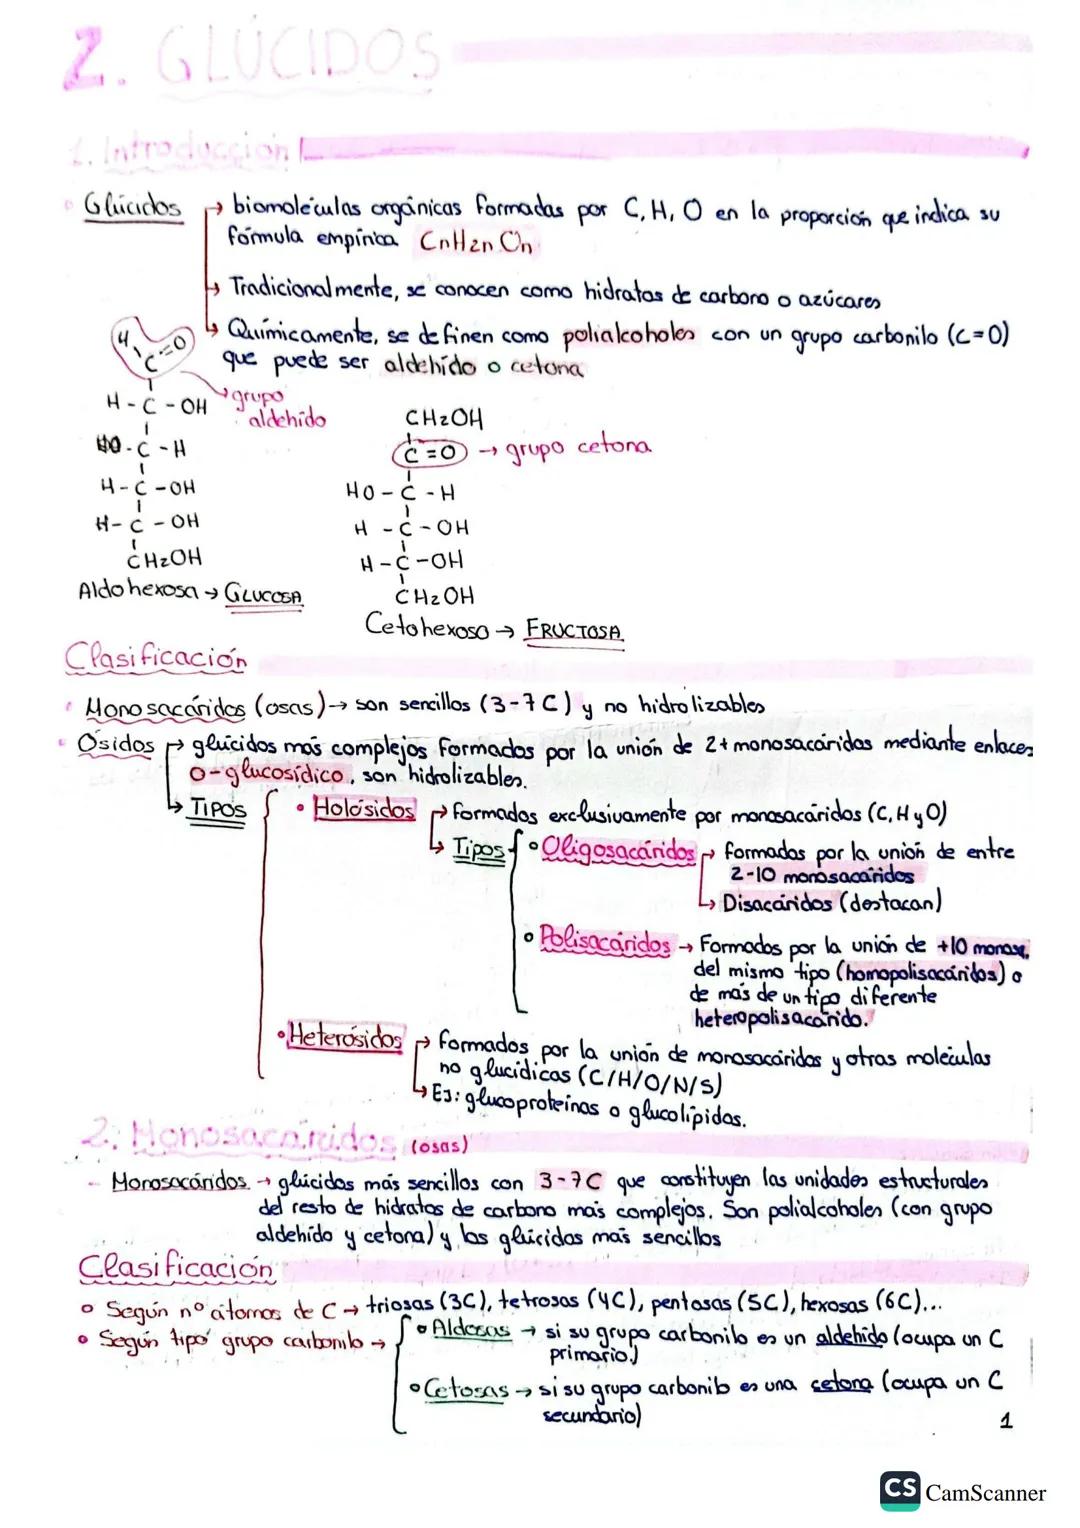 2. GLÚCIDOS
1. Introducción
Glúcidos → biomoléculas orgánicas formadas por C, H, O en la proporción que indica su
fórmula empírica CnH2nOn
→ Tradicionalmente, se conocen como hidratos de carbono o azúcares
→ Químicamente, se definen como polialcoholes con un grupo carbonilo (C=O)
que puede ser aldehído o cetona
H
C=O
→ grupo
aldehido
H-C-OH
HO-C-H
H-C-OH
H-C-OH
CH2OH
Aldohexosa → GLUCOSA
CH2OH
C=O → grupo cetona
HO-C-H
H-C-OH
H-C-OH
CH2OH
Cetohexosa → FRUCTOSA
Clasificación
Monosacáridos (osas) → son sencillos (3-7C) y no hidrolizables
Ósidos → glúcidos más complejos formados por la unión de 2+ monosacáridos mediante enlaces
O-glucosídico, son hidrolizables.
→ TIPOS
• Holósidos → formados exclusivamente por monosacáridos (C, H y O)
→ Tipos
• Oligosacáridos → formados por la unión de entre
2-10 monosacáridos
→ Disacáridos (destacan)
• Polisacáridos → Formados por la unión de +10 monosa.
del mismo tipo (homopolisacáridos) o
de más de un tipo diferente
heteropolisacárido.
• Heterósidos → formados por la unión de monosacáridos y otras moléculas
no glucídicas (C/H/O/N/S)
→ EJ: glucoproteínas o glucolípidos.
2. Monosacáridos (osas)
- Monosacáridos → glúcidos más sencillos con 3-7C que constituyen las unidades estructurales
del resto de hidratos de carbono más complejos. Son polialcoholes (con grupo
aldehído y cetona) y los glúcidos más sencillos
Clasificación
• Según nº átomos de C → triosas (3C), tetrosas (4C), pentosas (5C), hexosas (6C)...
• Según tipo grupo carbonilo →
• Aldosas → si su grupo carbonilo es un aldehído (ocupa un C
primario)
• Cetosas → si su grupo carbonilo es una cetona (ocupa un C
secundario)
1
CS CamScanner